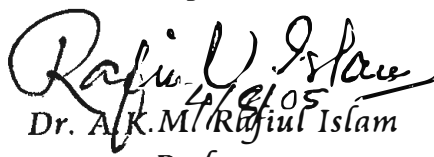 Rafiul Islam
4/8/05
Dr. A.K.M. Rafiul Islam